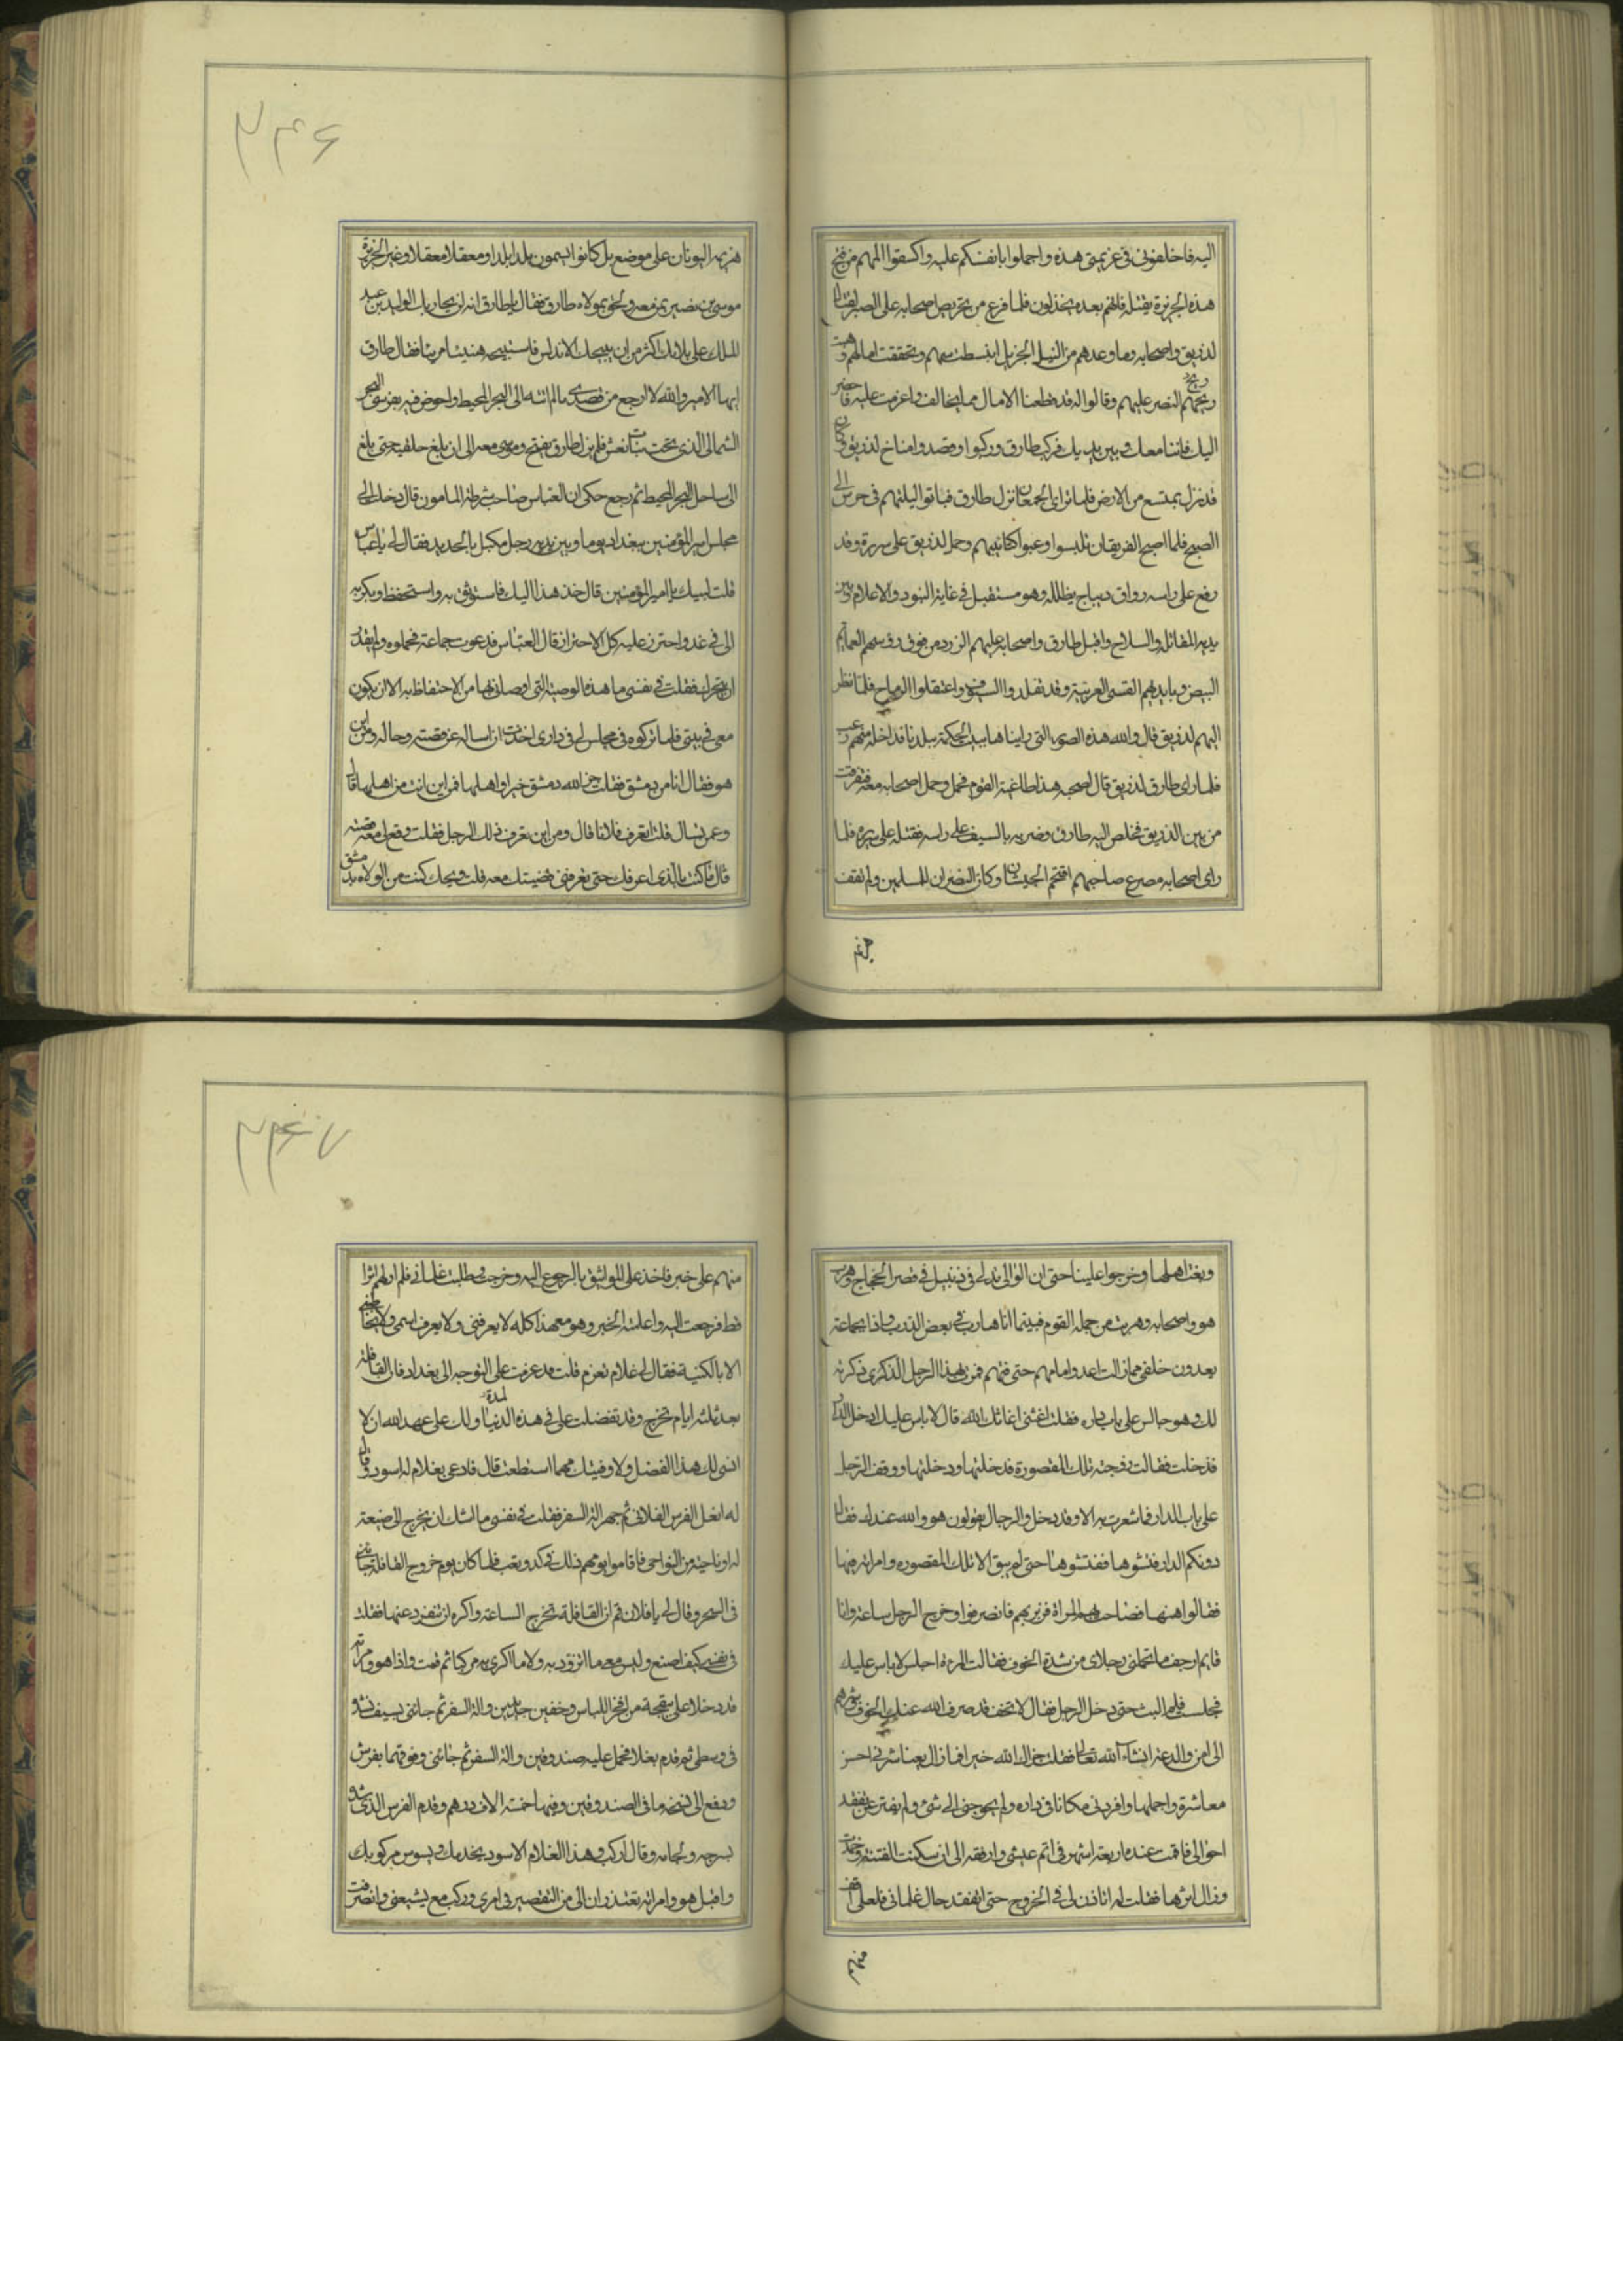 اليه فاخلفونى فى عزيمتى هذه واحملوا بانفسكم عليه واكسفوا المهم من فتح
هذه الجزيرة بقتله فانهم بعده يخذلون فلما فرغ من تحريص اصحابه على الصبر لقتال
لذريق واصحابه وما وعدهم من النيل الجزيل انبسطت سهم وتحققت امالهم وهبت
ريح النصر عليهم وقالوا له قد قطعنا الامال مما يخالف ما عزمت عليه فاحضر
اليك فاننا معك وبين يديك فركب طارق وركبوا وقصدوا مناخ لذريق وكان
قد نزل بمتسع من الارض فلما تراى الجمعان نزل طارق فباتوا ليلتهم فى حرس الى
الصبح فلما اصبح الفريقان تلبسوا وعبوا كتائبهم وحمل لذريق على سريره وقد
رفع على راسه رواق ديباج يظلله وهو مستقبل فى غاية البنود والاعلام وبين
يديه المقاتلة والسلاح واقبل طارق واصحابه عليهم الزرد من فوق رؤسهم العمائم
البيض وبايديهم القسى العربية وقد تقلدوا السيوف واعتقلوا الرماح فلما نظر
اليهم لذريق قال والله هذه الصور التى راينا ها ببيت الحكمة ببلدنا فداخله منهم رعب
فلما راى طارق لذريق قال لصحبه هذا طاغية القوم فحمل وحمل اصحابه معه فتفرقت
من بين الذريق فخلص اليه طارق وضربه بالسيف على راسه فقتله على سريره فلما
راى اصحابه مصرع صاحبهم اقتحم الجيشان وكان النصر ان للمسلمين ولم تقف
هزيمة
٢٤٦
هزيمة اليونان على موضع بل كانوا يسمون بلدا بلدا ومعقلا معقلا وعبر الجزيرة
موسى بن نصير بمن معه ولحق بمولاه طارق فقال يا طارق انه لن يجازيك الوليد بن عبد
الملك على بلائك اكثر من ان يبيحك الاندلس فاستبيحه هنيئا مريئا فقال طارق
ايها الامير والله لا ارجع من قصدى ما لم انته الى البحر المحيط واخوض فيه بفرسى البحر
الشمالى الذى تحت بنات نعش فلم يزل طارق يفتح وموسى معه الى ان بلغ جليقية حتى بلغ
الى ساحل البحر المحيط ثم رجع حكى ان العباس صاحب شرطة المامون قال دخلت الى
مجلس امير المؤمنين ببغداد يوما وبين يديه رجل مكبل بالحديد فقال لى يا عباس
قلت لبيك يا امير المؤمنين قال خذ هذا اليك فاستوثق به واستحفظ وبكر به
الى فى غد واحترز عليه كل الاحتراز قال العباس فدعوت جماعة فحملوه ولم يقدر
ان يتحرك فقلت فى نفسى ما هذه الوصية التى اوصانى بها من الاحتفاظ به الا ان يكون
معى فى بيتى فلما تركوه فى مجلس لى فى دارى اخذت ان اساله عن قصته وحاله ومن اين
هو فقال انا من دمشق فقلت جزا الله دمشق خيرا واهلها فمن اين انت من اهلها قال
وعمن تسال قلت تعرف فلانا قال ومن اين تعرف ذلك الرجل فقلت وقع لى معه قصته
قال ما كنت بالذى اعرفك حتى تعرفنى قضيتك معه فقلت ويحك كنت من الولاة بدمشق
وبغت اهلها وخرجوا علينا حتى ان الوالى تدلى فى زنبيل فى قصر الحجاج وهرب
هو واصحابه وهربت من جملة القوم فبينما انا هارب فى بعض الدروب واذا بجماعة
يعدون خلفى فمازالت اعدو امامهم حتى فتهم فمررت بهذا الرجل الذى ذكرته
لك وهو جالس على باب داره فقلت اغثنى اغاثك الله قال لا باس عليك ادخل الدار
فدخلت فقالت زوجته تلك المقصورة فدخلتها ودخلتها ووقف الرجل
على باب الدار فما شعرت به الا وقد دخل والرجال يقولون هو والله عندك فقال
دونكم الدار فتشوها ففتشوها حتى لم يبق الا تلك المقصوره وامراته فيها
فقالوا هنها فصاحت بهم المراة فزبرتهم فانصرفوا وخرج الرجل ساعة وانا
قايم ارجف ما تحملنى رجلاى من شدة الخوف فقالت المرءة اجلس لا باس عليك
فجلست فلم البث حتى دخل الرجل فقال لا تخف قد صرف الله عنك الخوف شرهم
الى امن والدعة انشاء الله تعالى فقلت جزاك الله خيرا فما زال يعاشرنى احسن
معاشرة واجملها وافردنى مكانا فى داره ولم يحوجنى الى شئ ولم يفتر عن تفقد
احوالى فاقمت عنده اربعة اشهر فى اتم عيش وارفقه الى ان سكنت الفتنة وخمدت
وزال اثرها فقلت له اتاذن لى فى الخروج حتى اتفقد حال غلمانى فلعلى اقف
منهم
٢٤٧
منهم على خبر فاخذ على المواثيق بالرجوع اليه وخرجت وطلبت غلمانى فلم ار لهم اثرا
قط فرجعت اليه واعلمته الخبر وهو مع هذا كله لا يعرفنى ولا يعرف اسمى ولا يخاطبنى
الا بالكنية فقال لى علام تعزم قلت قد عزمت على التوجه الى بغداد فان القافلة
بعد ثلثة ايام تخرج وقد تفضلت على فى هذه المدة ولك على عهد الله ان لا
انسى لك هذا الفضل ولاوفينك مهما استطعت قال فدعى بغلام له اسود وقال
له انعل الفرس الفلانى ثم جهز آلة السفر فقلت فى نفسى ما اشك ان يخرج الى ضيعة
له او ناحية من النواحى فاقاموا يومهم ذلك فى كد وتعب فلما كان يوم خروج القافلة جائنى
فى السحر وقال لى يا فلان قم ان القافلة تخرج الساعة واكره ان تنفرد عنها فقلت
فى نفسى كيف اصنع وليس معى ما اتزود به ولا ما اكرى به مركبا ثم قمت واذا هو وامراته
قد دخلا على بقجة من افخر اللباس وخفين جديدين وآلة السفر ثم جائنى بسيف فشده
فى وسطى ثم قدم بغلا فحمل عليه صندوقين وآلة السفر ثم جائنى وفوقهما بفرش
ودفع الى نسخة ما فى الصندوقين وفيها خمسة الاف درهم وقدم الفرس الذى
بسرجه ولجامه وقال اركب وهذا الغلام الاسود يخدمك ويسوس مركوبك
واقبل هو وامراته يعتذران الى من التقصير فى امرى وركب مع يشيعنى وانصرفت